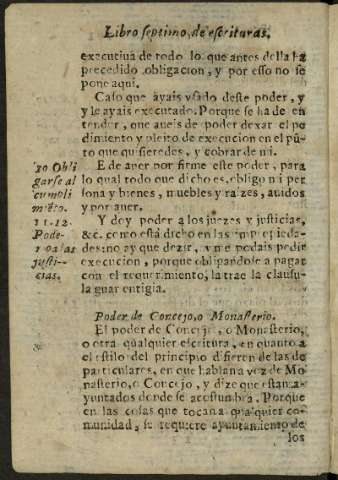 Libro septimo, de escrituras.
executiua de todo lo que antes della ha
precedido obligacion, y por esso no se
pone aqui.
Caso que ayais vsado deste poder, y
y le ayais executado. Porque se ha de en
tender, que aueis de poder dexar el pe
dimiento y pleito de execucion en el pũ-
to que quisieredes, y cobrar de mi.
10 Obli
garse al
cumpli
miẽto.
E de auer por firme este poder, para
lo qual todo que dicho es, obligo mi per
sona y bienes, muebles y raizes, auidos
y por auer.
11.12.
Pode-
r a las
justi-
cias.
Y doy poder a los juezes y justicias,
&c. como está dicho en las
desto no ay que dezir, y me podais pedir
execucion, porque obligandose a pagar
con el requerimiento, la trae la clausu-
la guarentigia.
Poder de Concejo, o Monasterio.
El poder de Concejo, o Monasterio,
o otra qualquier escritura, en quanto a
el estilo del principio difieren de las de
particulares, en que hablan a voz de Mo
nasterio, o Concejo, y dize que estan a-
yuntados donde se acostumbra. Porque
en las cosas que toca a qualquier co-
munidad, se requiere ayuntamiento de
los